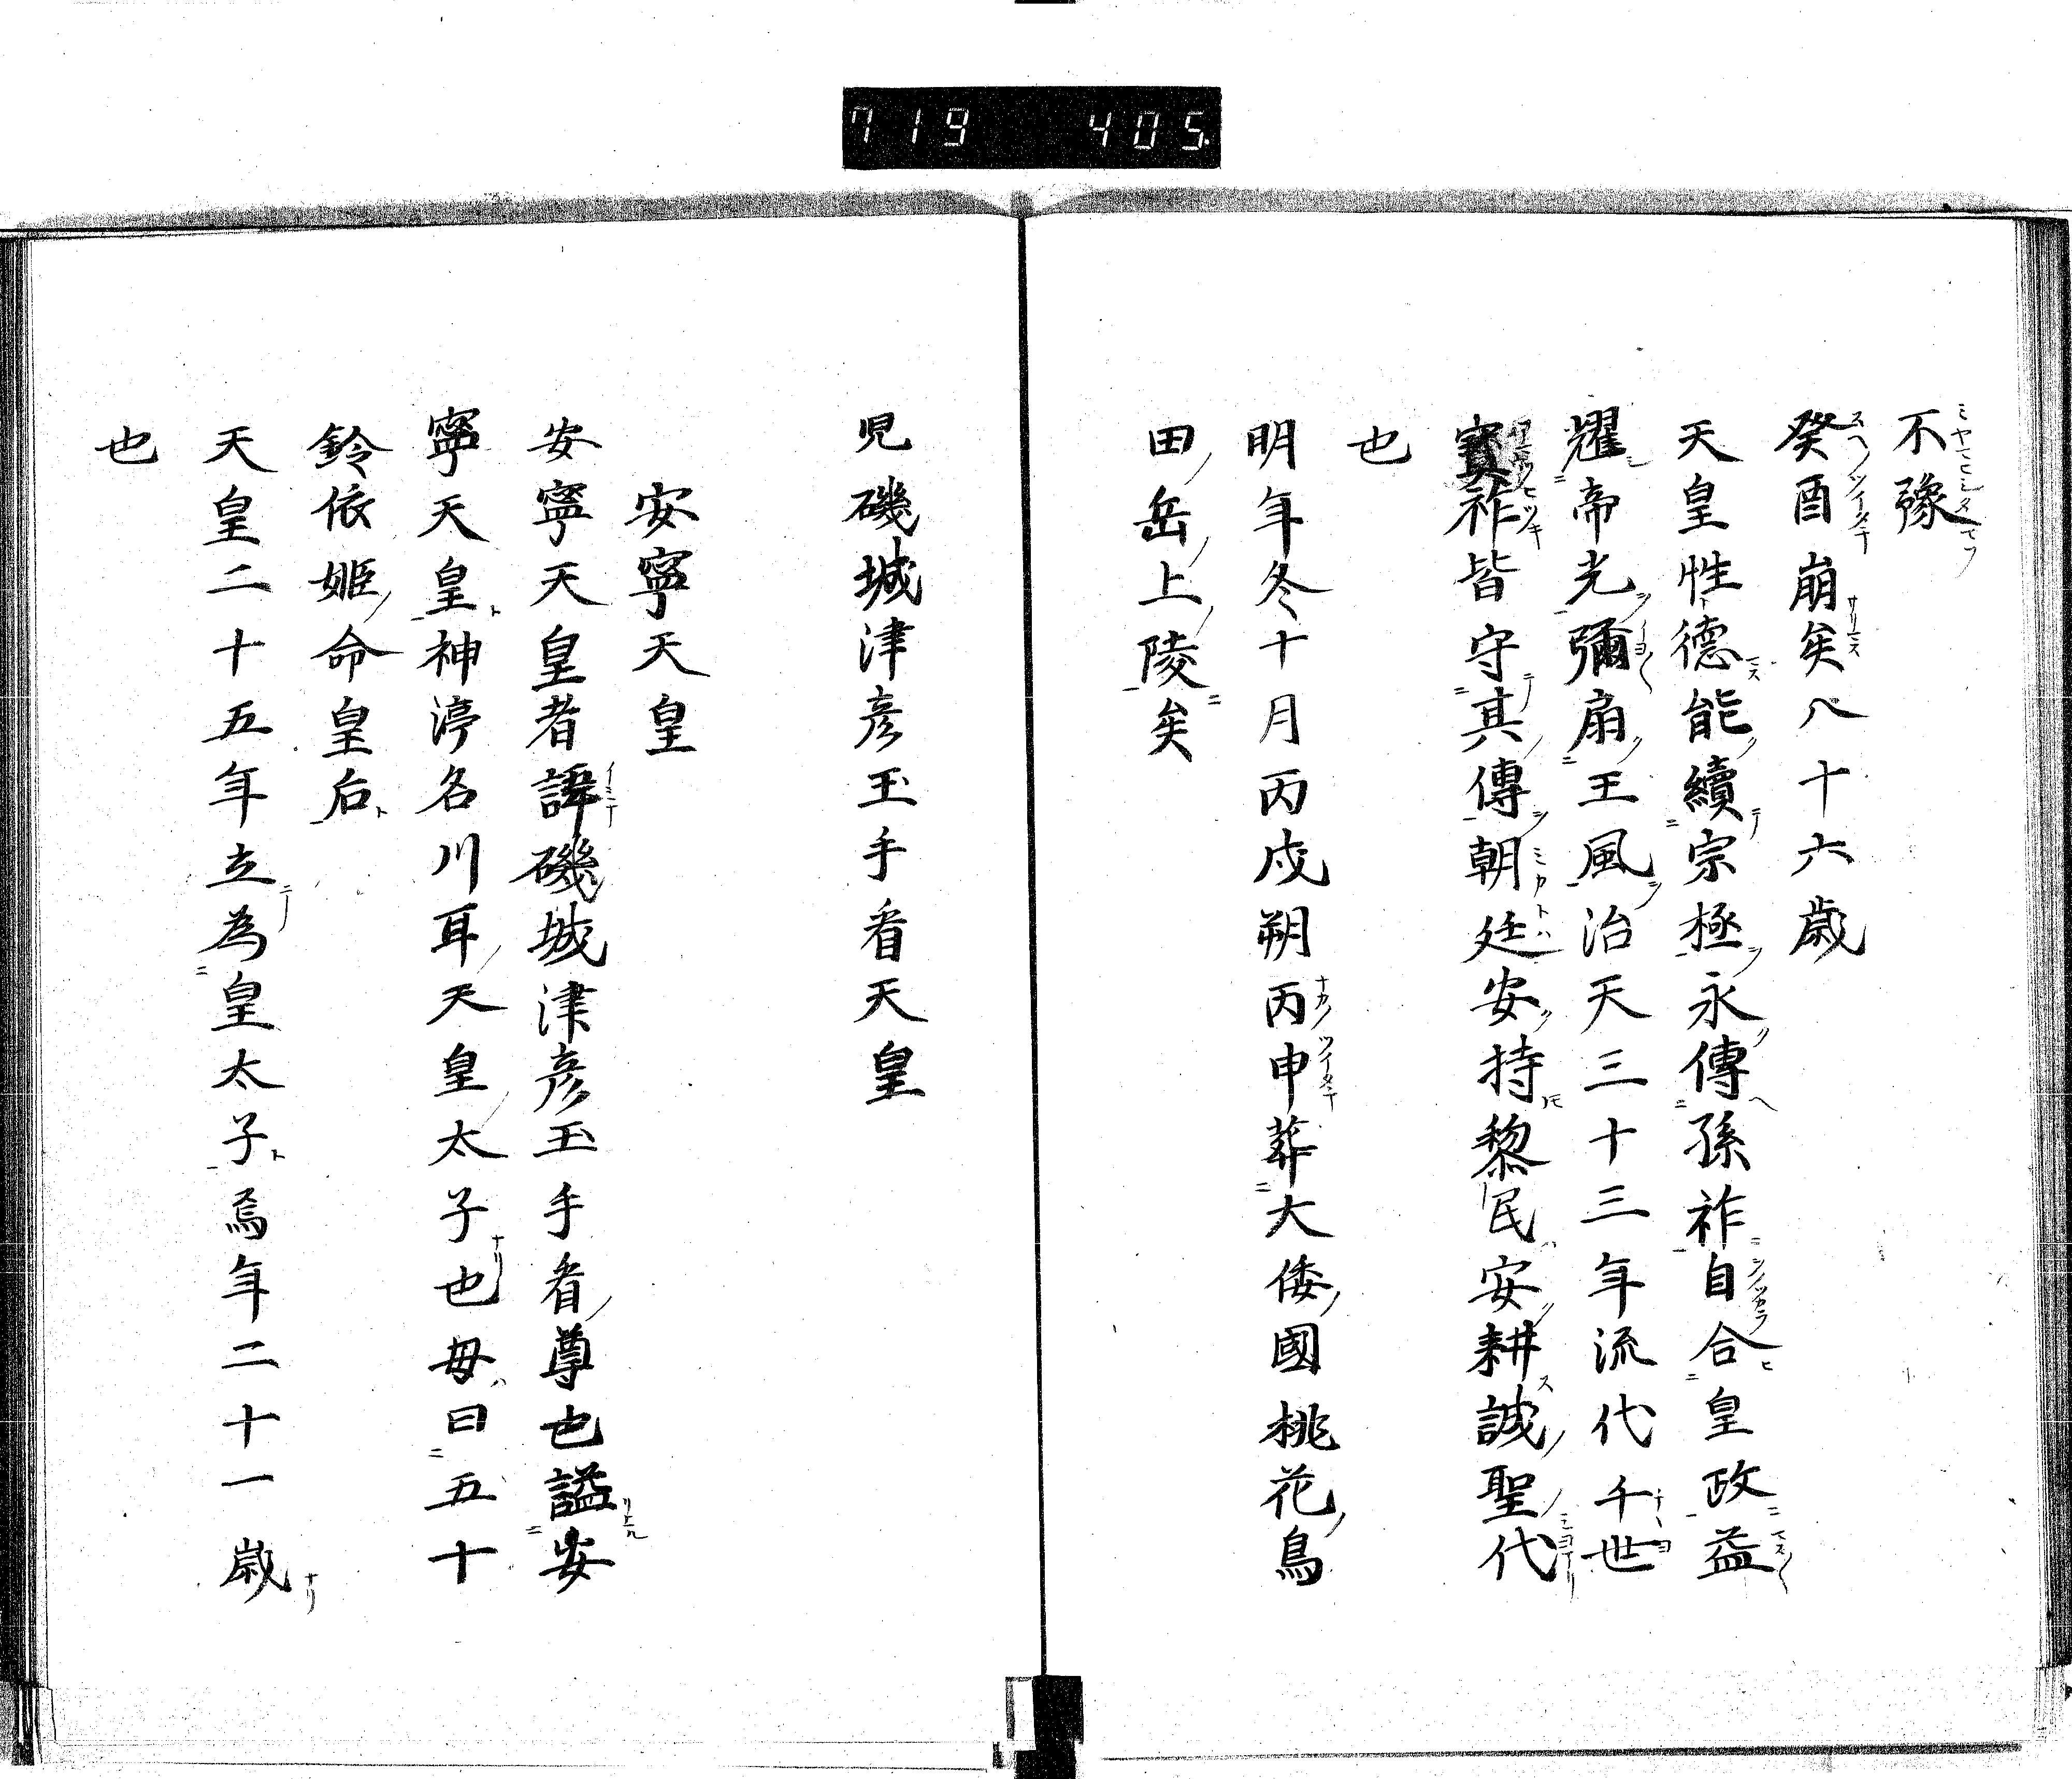 719 405
不豫
癸酉崩矣八十六歳
天皇性德能續宗極永傳孫祚自合皇政益
耀帝光彌扇王風治天三十三年流代千世
寳祚皆守其傳朝廷安持黎民安耕誠聖代
也
明年冬十月丙戌朔丙申葬大倭國桃花鳥
田岳上陵矣
児磯城津彦玉手看天皇
安寧天皇
安寧天皇者諱磯城津彦玉手看尊也謚安
寧天皇神渟名川耳天皇太子也母曰五十
鈴依姬命皇后
天皇二十五年立為皇太子焉年二十一歳
也